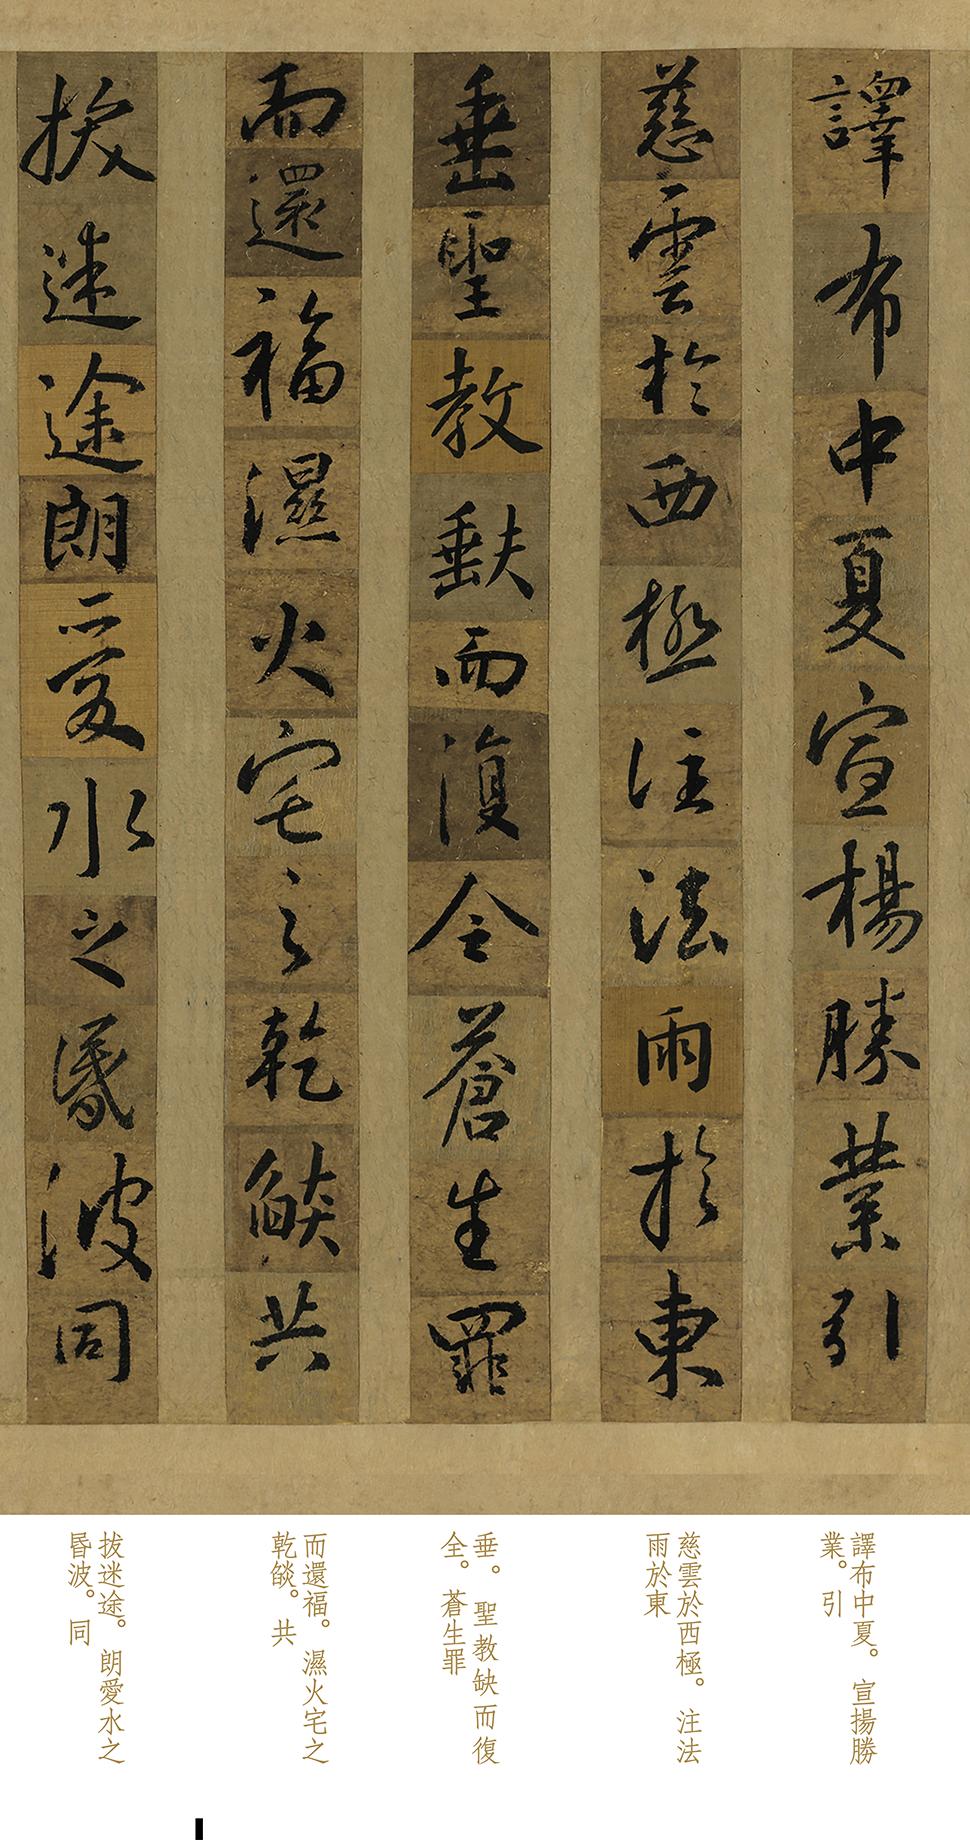 譯布中夏宣楊勝業引
慈雲於西極注法雨於東
垂聖教缺而復全蒼生罪
而還福濕火宅之乾燄共
拔迷途朗愛水之昏波同
譯布中夏。宣揚勝
業。引
慈雲於西極。注法
雨於東
垂。聖教缺而復
全。蒼生罪
而還福。濕火宅之
乾燄。共
拔迷途。朗愛水之
昏波。同